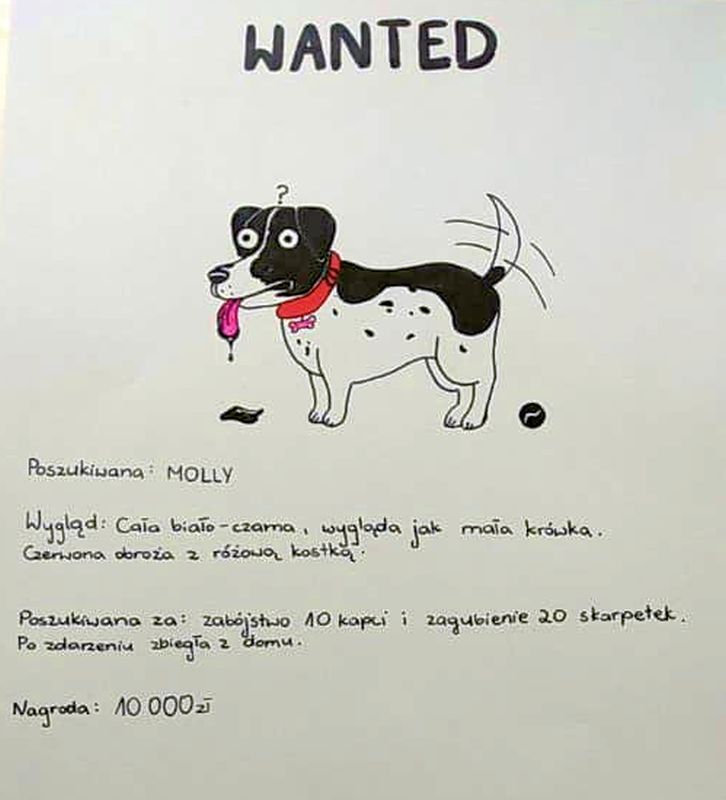 WANTED
?
Poszukiwana: MOLLY
Wygląd: Cała biało-czarna, wygląda jak mała krówka.
Czerwona obroża z różową kostką.
Poszukiwana za: zabójstwo 10 kapci i zagubienie 20 skarpetek.
Po zdarzeniu zbiegła z domu.
Nagroda: 10 000 zł